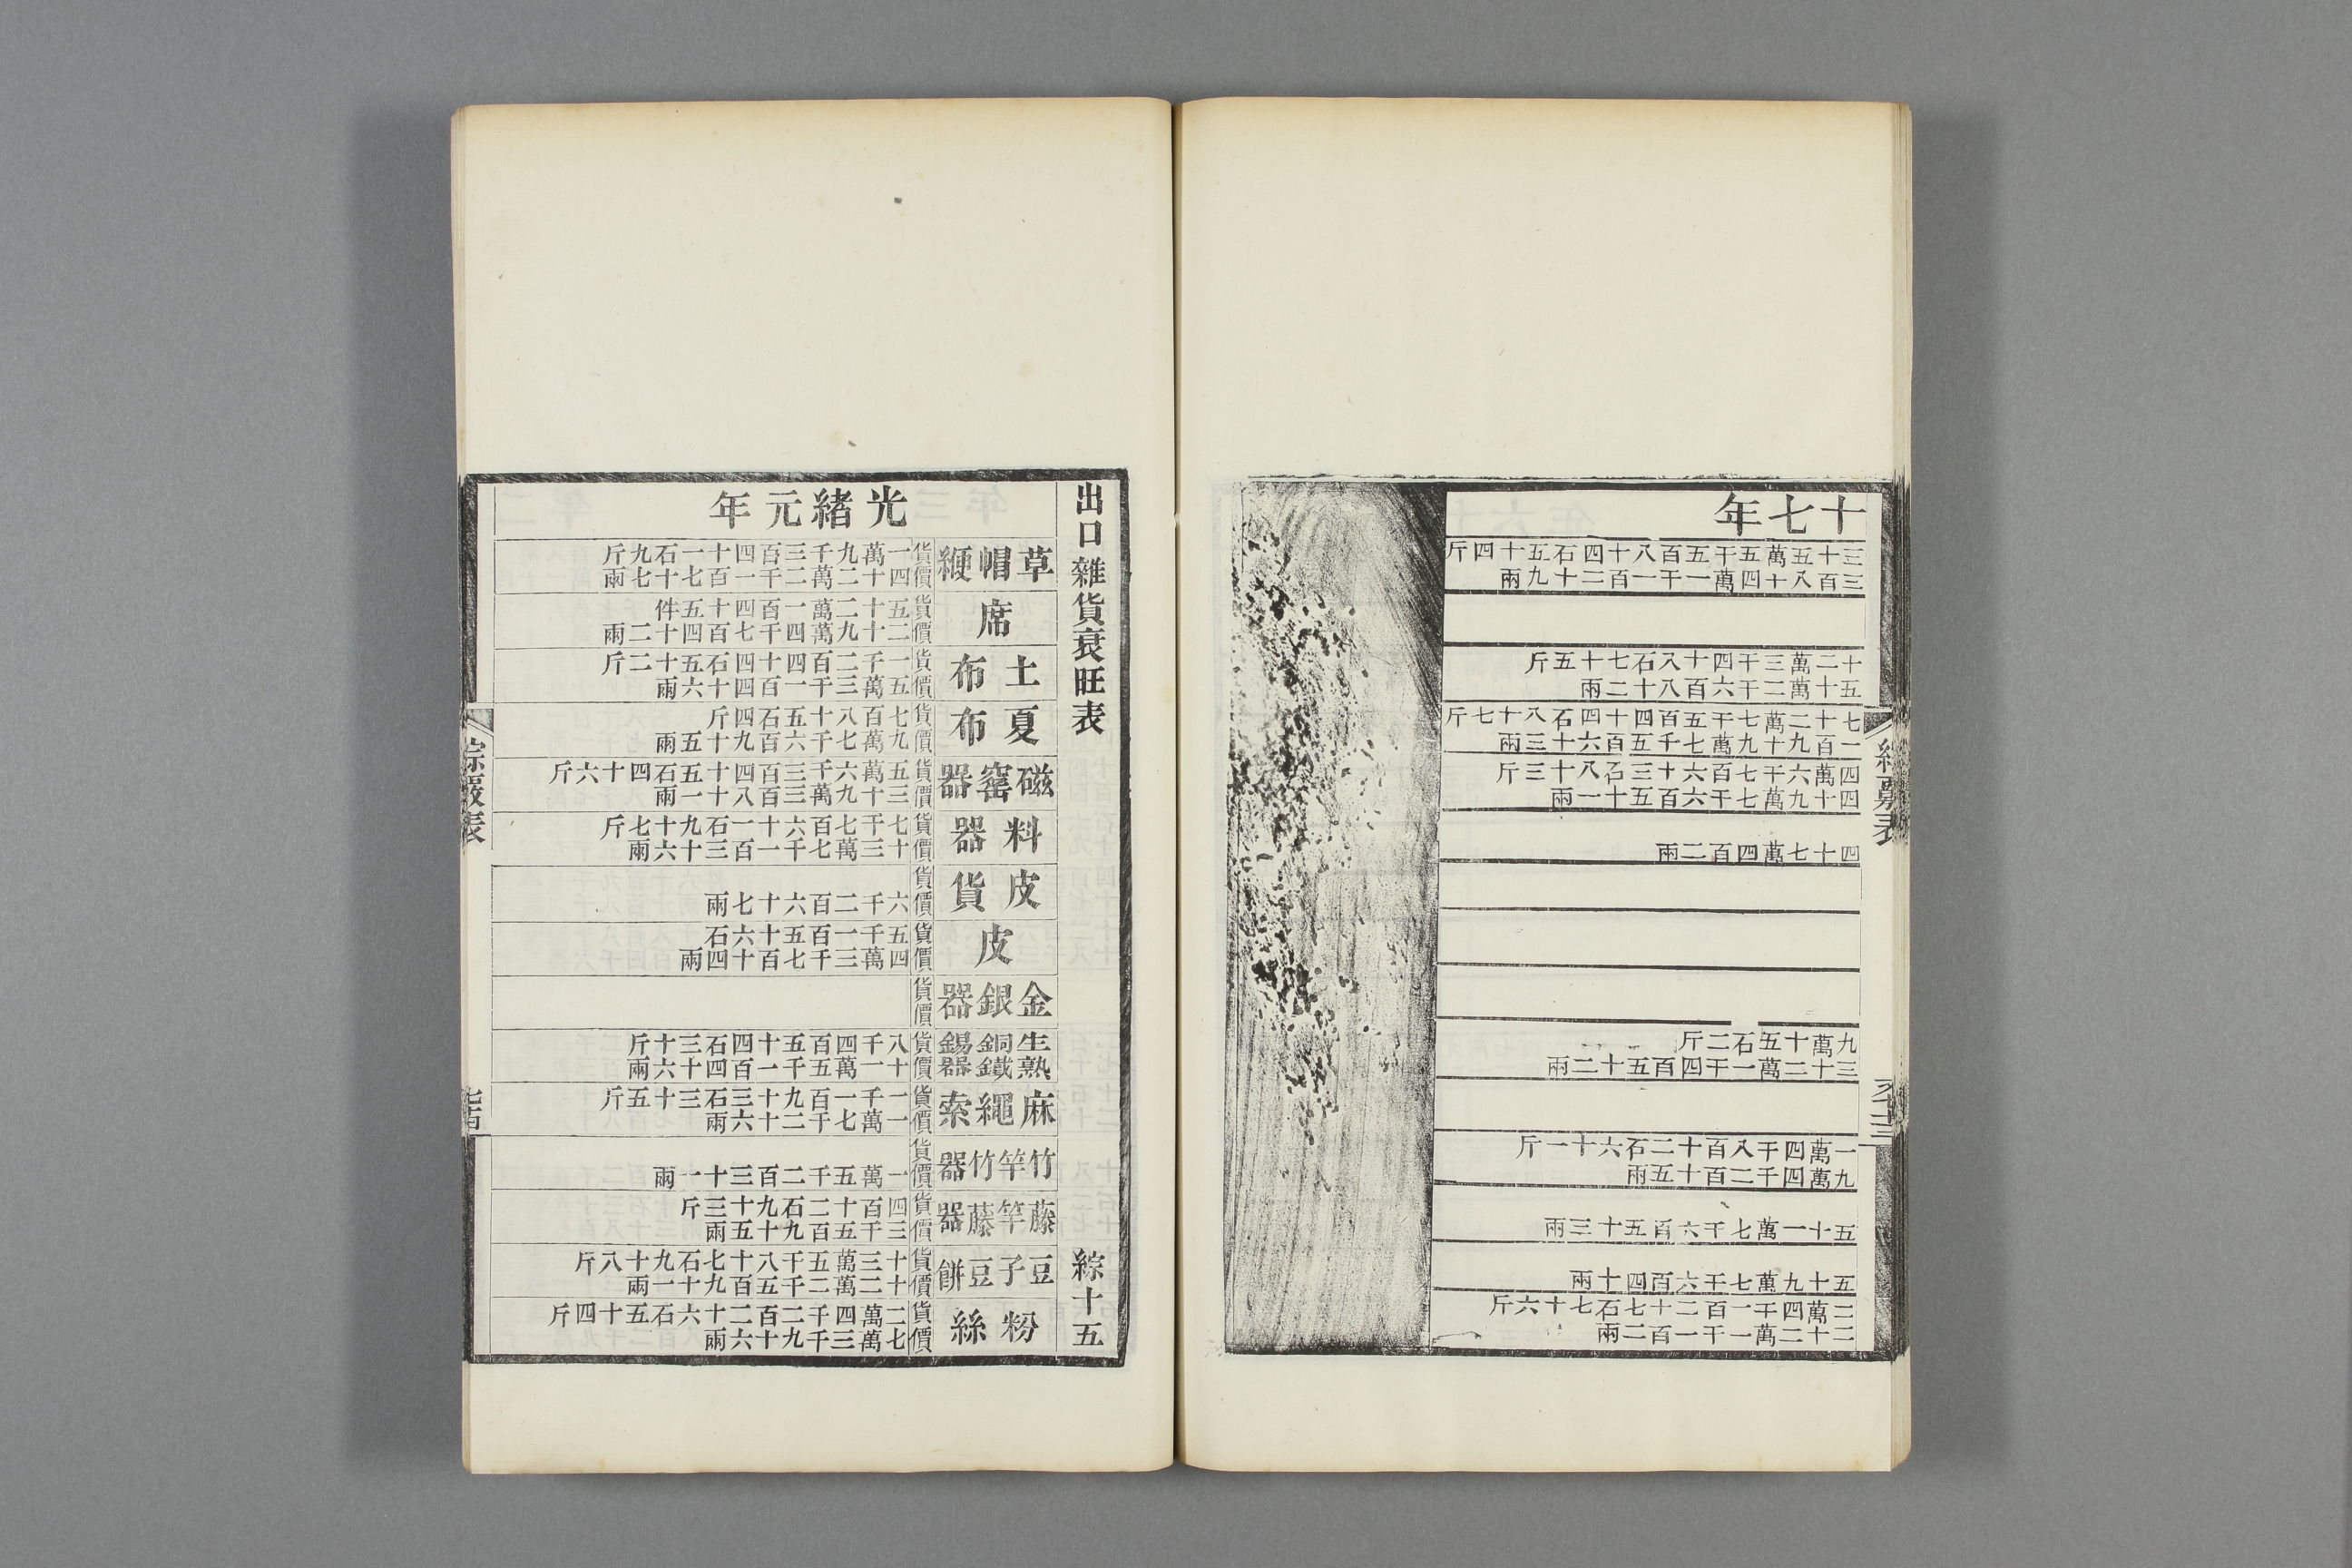 十七年
三十五萬五千五百八十四石五十四斤
三百八十四萬一千一百二十九兩
十二萬三千四十八石七十五斤
五十萬二千六百八十二兩
七十二萬七千五百四十四石八十七斤
一百九十九萬七千五百六十三兩
四萬六千七百六十三石八十三斤
四十九萬七千六百五十一兩
四十七萬四百二兩
九萬十五石二斤
三十二萬一千四百五十二兩
一萬四千八百十二石六十一斤
九萬四千二百十五兩
五十一萬七千六百五十三兩
五十九萬七千六百四十兩
二萬四千一百二十七石七十六斤
二十二萬一千一百二兩
出口雜貨衰旺表
綜十五
光緒元年
草帽緶
貨 一萬九千三百四十一石九斤
價 四十二萬二千一百七十七兩
席
貨 五十二萬一百四十五件
價 二十九萬四千七百四十二兩
土布
貨 一千二百四十四石五十二斤
價 五萬三千一百四十六兩
夏布
貨 七百八十五石四斤
價 九萬七千六百九十五兩
磁窰器
貨 五萬六千三百四十五石四十六斤
價 三十九萬三百八十一兩
料器
貨 七千七百六十一石九十七斤
價 十三萬七千一百三十六兩
皮貨
貨
價 六千二百六十七兩
皮
貨 五千一百五十六石
價 四萬三千七百十四兩
金銀器
貨
價
生熟銅鐵錫器
貨 八千四百五十四石三十斤
價 十一萬五千一百四十六兩
麻繩索
貨 一千一百九十三石三十五斤
價 一萬七千二十六兩
竹竿竹器
貨
價 一萬五千二百三十一兩
藤竿藤器
貨 四百十二石九十三斤
價 三千五百九十五兩
豆子豆餅
貨 十三萬五千八十七石九十八斤
價 十二萬二千五百九十一兩
粉絲
貨 二萬四千二百二十六石五十四斤
價 七萬三千九十六兩